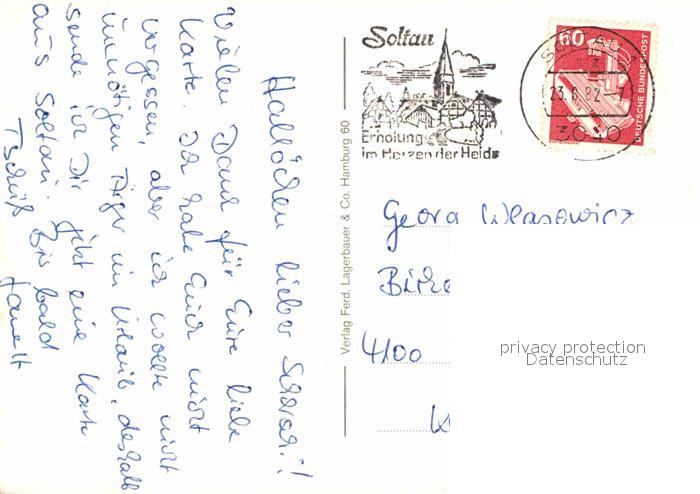 Hallöchen lieber
Vielen Dank für Eure liebe
Karte. Ich habe Euch nicht
vergessen, aber ich wollte nicht
unnötigen Ärger im Urlaub, deshalb
sende ich Dir jetzt eine Karte
aus Soltau. Bis bald
Tschüß
Verlag Ferd. Lagerbauer & Co. Hamburg 60
Soltau
Erholung
im Herzen der Heide
60
DEUTSCHE BUNDESPOST
23.6.82
3040
Georg
4100
privacy protection
Datenschutz